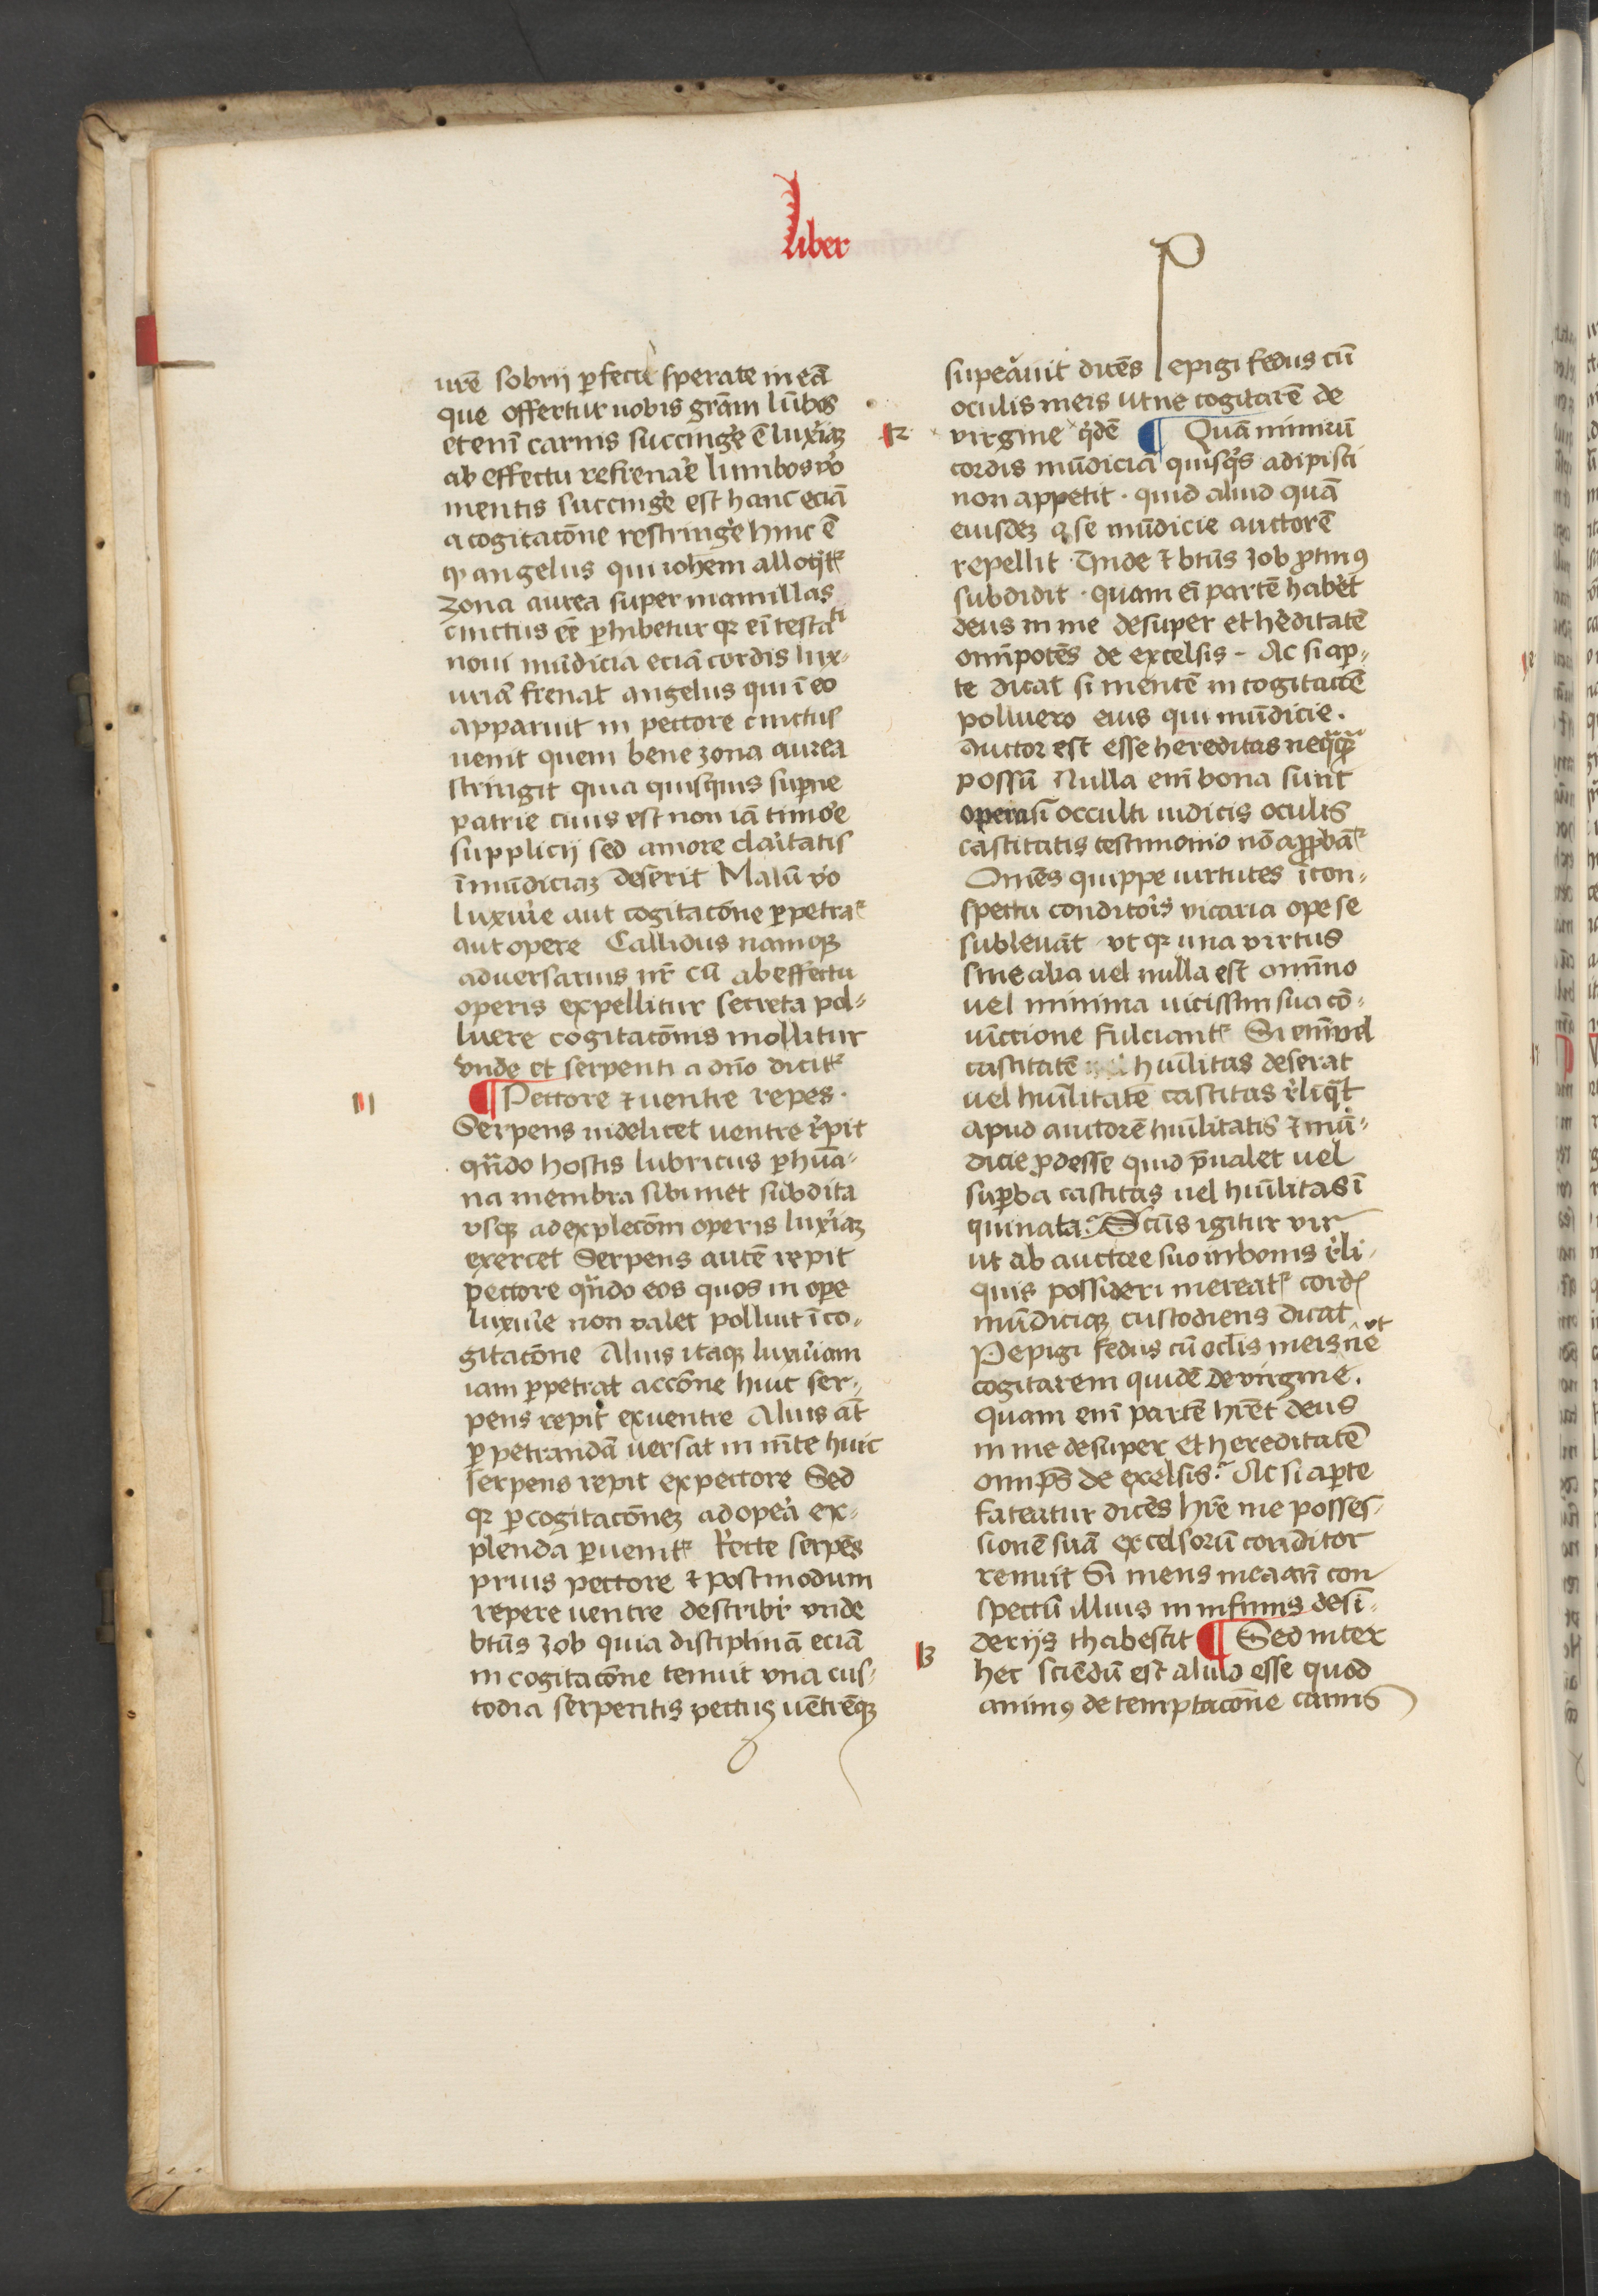 Liber
urē sobrij ꝑfecti sperate in eā
que offertur uobis grām lūbos
etenī carnis succinge͛ ē luxͥaꝫ
ab effectu refrenar̄e lumbos v̊o
mentis succinge͛ est hanc eciā
a cogitacōne restringe͛ hinc ē
ꝙ angelus qui iohēm alloqͥtᷣ
zona aurea super mamillas
cinctus eē ꝑhibetur qꝛ eī testa
ti
noui mūdicia eciā cordis lux-
uriā frenat angelus qui ī eo
apparuit in pectore cinctus
uenit quem bene zona aurea
stringit quia quisquis suꝑne
patrie ciuis est non iā timor̄e
supplicij sed amore claͥtatis
īmūdiciaꝫ deserit Malū v̊o
luxur̄ie aut cogitacōne ꝑpetraᷣ
aut opere Callidus namqꝫ
aduersarius nr̄ cū ab effectu
operis expellitur secreta pol-
luere cogitacōnis mollitur
vnde et serpenti a dn̄o dicitᷣ
¶ Pectore ⁊ uentre repes.
III
Serpens uidelicet uentre r̄pit
qn̄do hostis lubricus ꝑ hūa-
na membra sibimet subdita
vsqꝫ ad explecōm operis luxͥaꝫ
exercet Serpens autē repit
pectore qn̄do eos quos in oꝑe
luxur̄ie non valet polluit ī co-
gitacōne Alius itaqꝫ luxuriam
iam ꝑpetrat accōne huic ser-
pens repit ex uentre Alius aūt
ꝑpetrandā uersat in mēte huic
serpens repit ex pectore Sed
qꝛ ꝑ cogitacōneꝫ ad oper̄a ex-
plenda ꝑuenitᷣ Recte serpēs
prius pectore ⁊ postmodum
repere uentre describir̄ vnde
btūs Job quia disciplinā eciā
in cogitacōne tenuit vna cus-
todia serpentis pectꝰ uētrēqꝫ
superauit dicēs Pepigi fedus cū
oculis meis ut ne cogitarē de
R
virgine qͥdē ¶ Quā nimirū
cordis mūdiciā quisqͥs adipisci
non appetit . quid aliud quā
eiusdeꝫ a se mūdicie auctorē
repellit . Vnde ⁊ btūs Job ꝓtinꝰ
subdidit . quam eī partē habet͛
deus in me desuper et he͛ditatē
omīpotēs de excelsis - Ac si aꝑ-
te dicat si mentē in cogitacōe
polluero eius qui mūdicie .
auctor est esse hereditas neqͣqͣꝫ
possū Nulla enī bona sunt
opera si occulti iudicis oculis
castitatis testimonio nō aꝓbātᷣ
Om̄es quippe uirtutes ī con-
spectu conditor̄is vicaria ope se
subleuāt vt qꝛ una virtus
sine alia uel nulla est omīno
uel minima uicissim sua cō-
iūccione fulciantᷣ Si enī vel
castitatē hūilitas deserat
uel hūilitatē castitas r̄liqͣt
apud auctorē hūilitatis ⁊ mū-
dicie ꝓdesse quid p̄ualet uel
suꝑba castitas uel hūilitas ī
quinata? Scūs igitur vir
ut ab auctore suo in bonis r̄li-
quis possideri mereatᷣ cordꝭ
mūdiciaꝫ custodiens dicat
Pepigi fedus cū oclīs meis vt ne
cogitarem quidē de virgine .
quam enī partē hr̄et deus
in me desuper et hereditatē
omīps̄ de excelsis? Ac si aꝑte
fateatur dicēs hr̄e me posses-
sionē suā excelsorū conditor
renuit Si mens mea an̄ con
spectū illius in infimis desi-
B
derijs thabescit ¶ Sed inter
hec sciēdū est aliud esse quod
animꝰ de temptacōne carnis